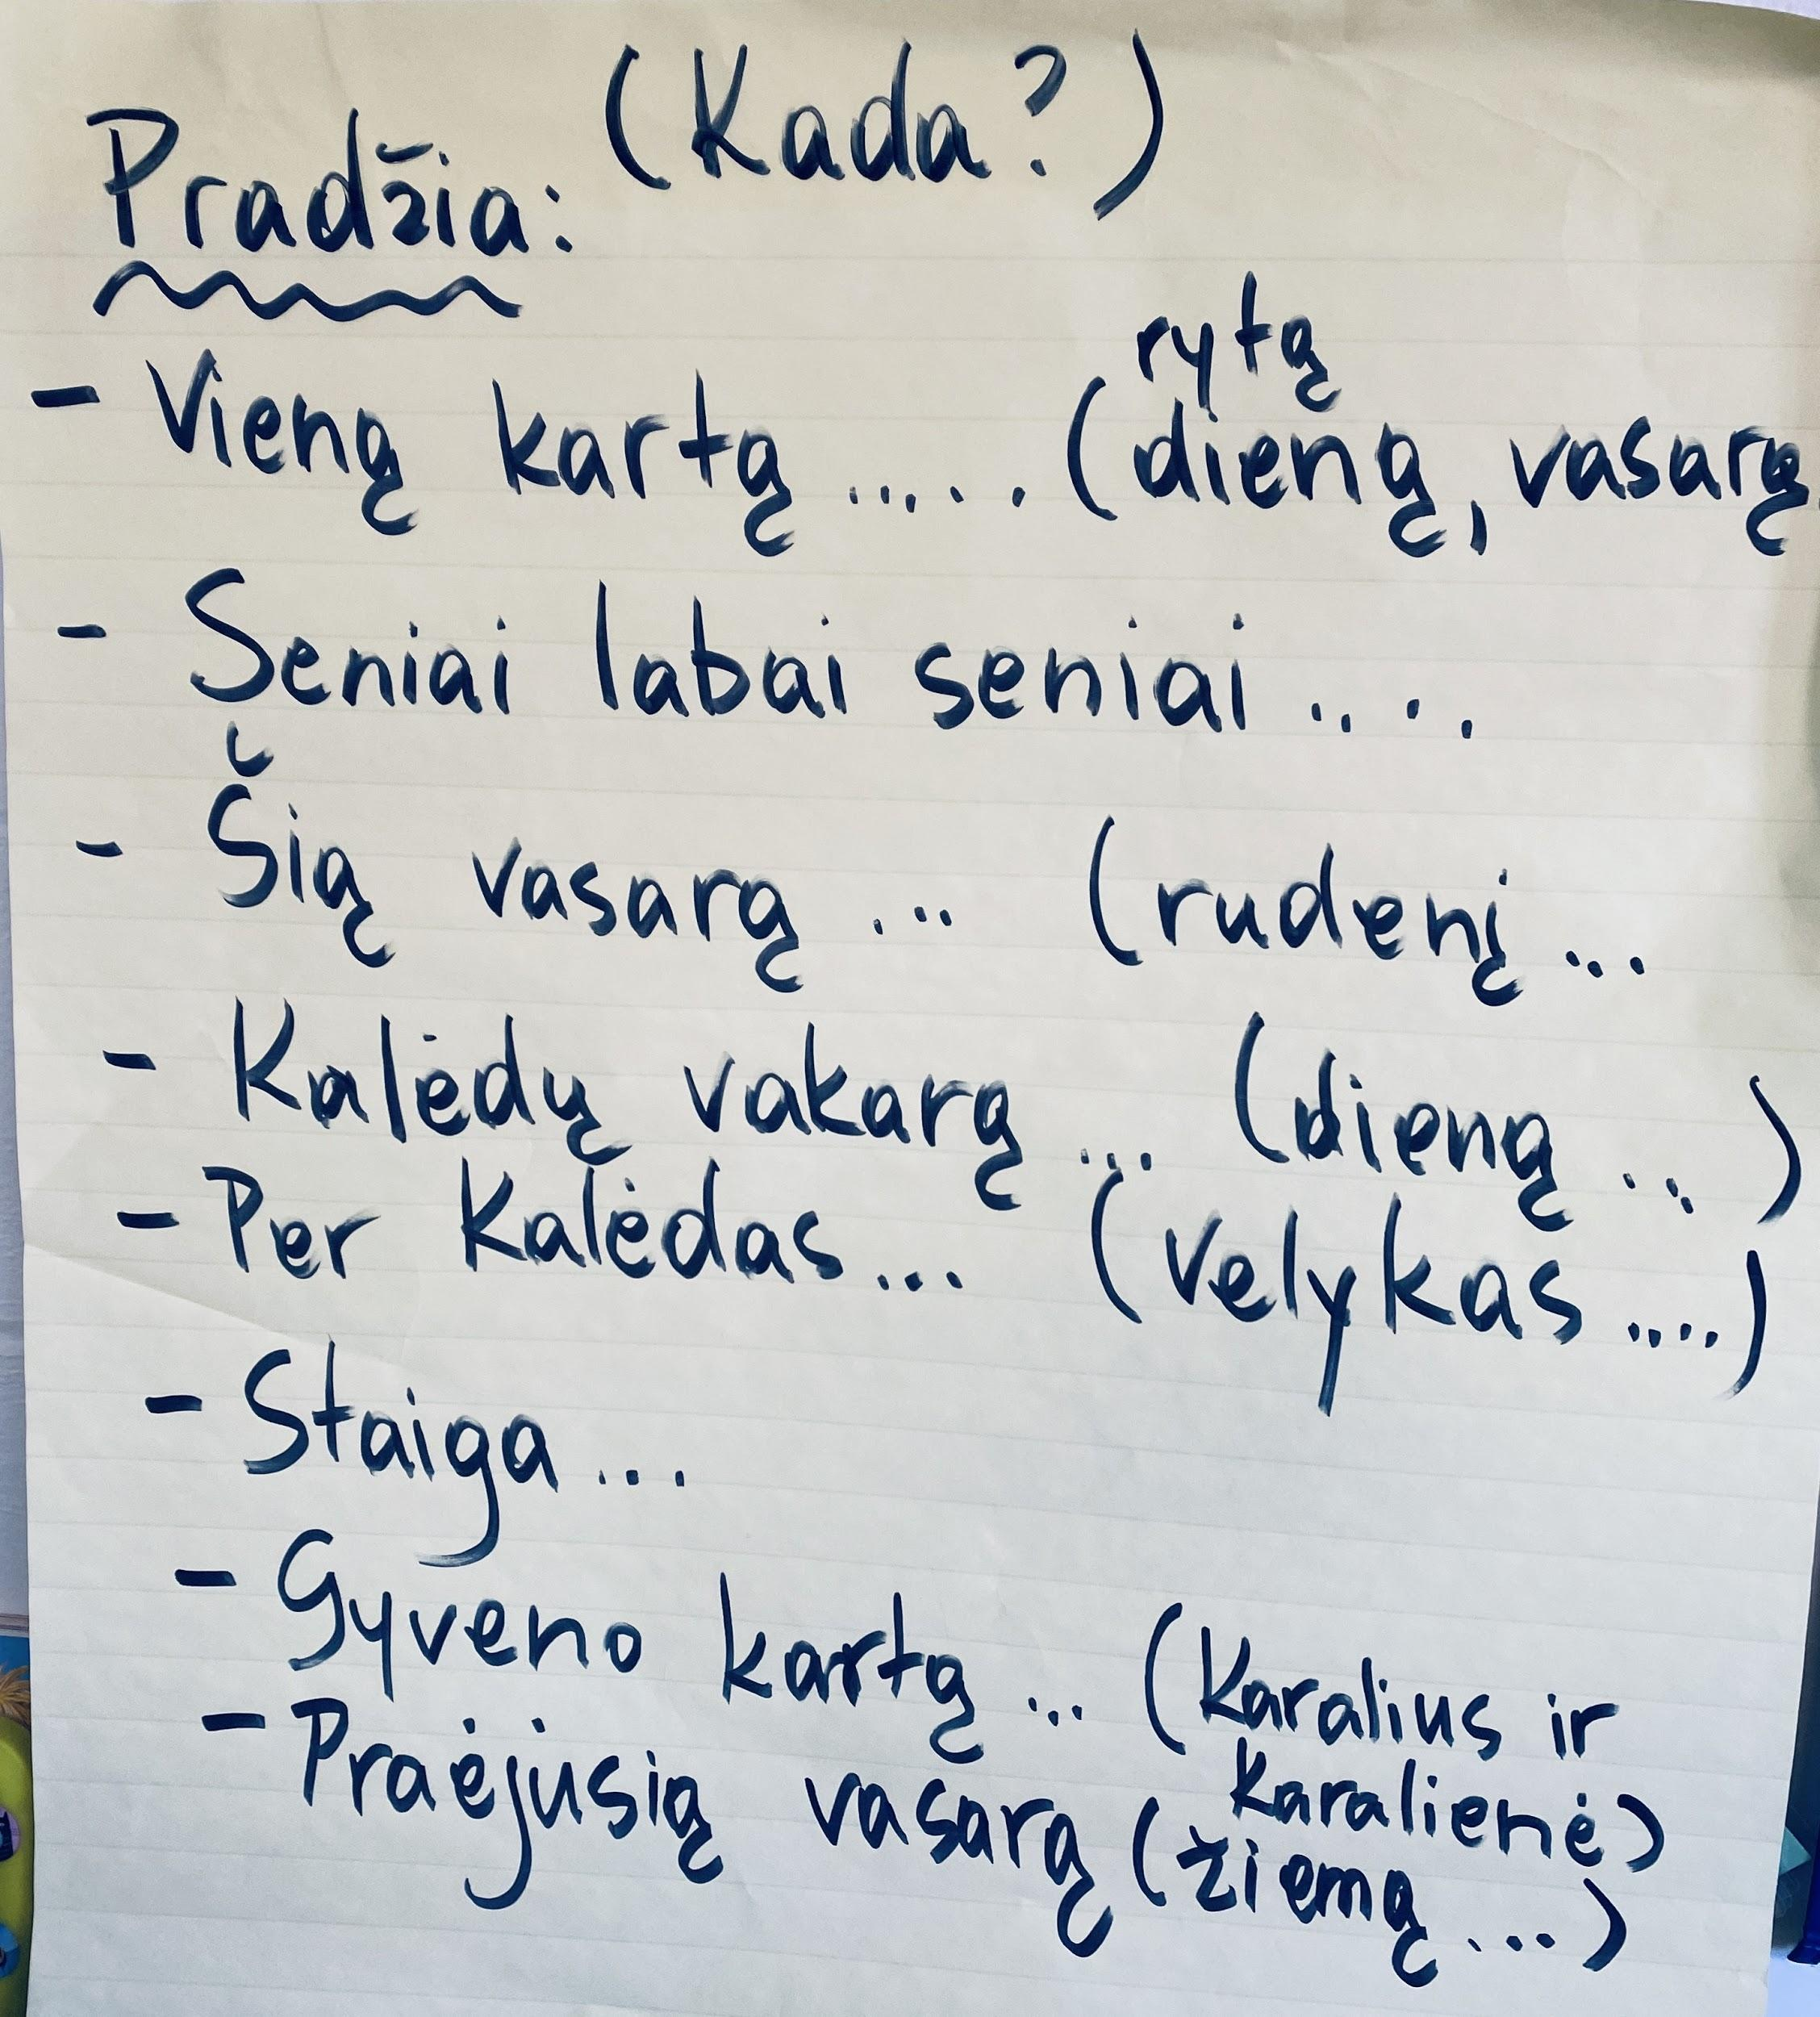 (Kada?)
Pradžia:
rytą
- Vieną kartą ..... (dieną, vasarą
- Seniai labai seniai ....
- Šią vasarą ... (rudenį ...
- Kalėdų vakarą ... (dieną ...)
- Per Kalėdas ... (Velykas ....)
- Staiga ...
- Gyveno kartą ... (Karalius ir
Karalienė)
- Praėjusią vasarą (žiemą ...)